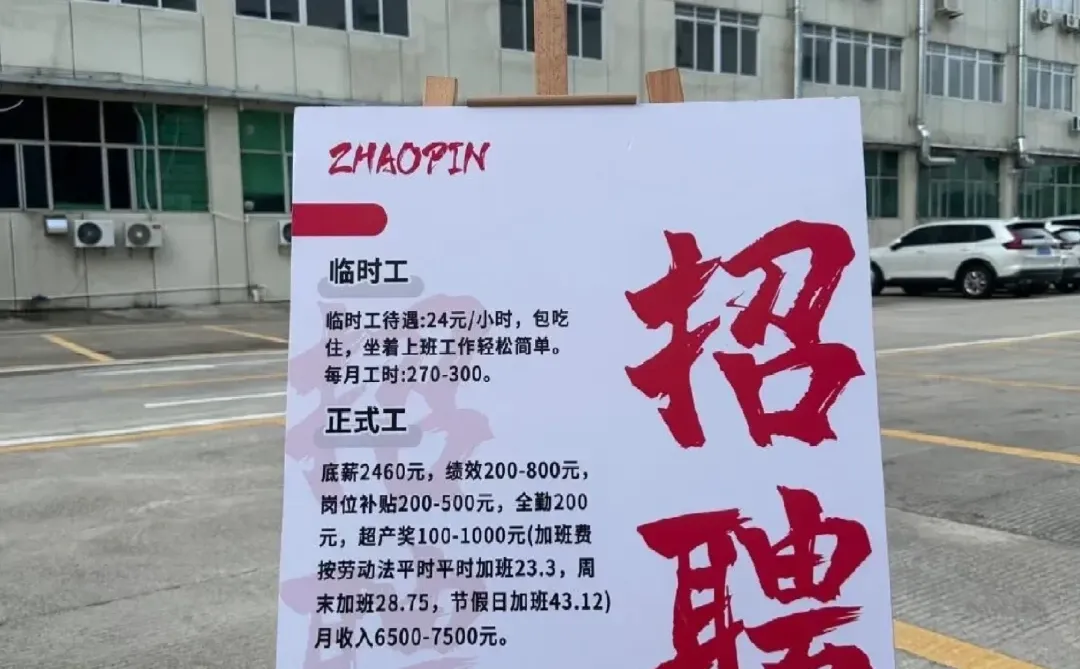 ZHAOPIN
招聘
临时工
临时工待遇:24元/小时，包吃
住，坐着上班工作轻松简单。
每月工时:270-300。
正式工
底薪2460元，绩效200-800元，
岗位补贴200-500元，全勤200
元，超产奖100-1000元(加班费
按劳动法平时平时加班23.3，周
末加班28.75，节假日加班43.12)
月收入6500-7500元。